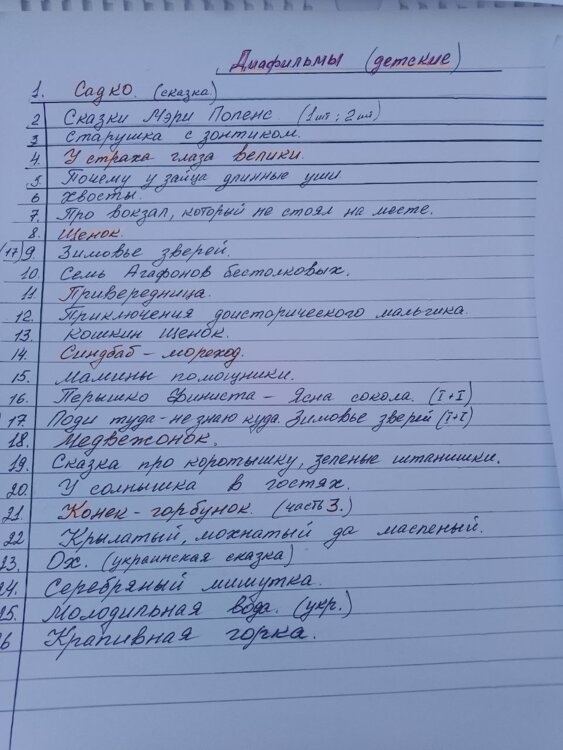 Диафильмы (детские)
1. Садко. (сказка.)
2 Сказки Мэри Попенс (1шт; 2шт)
3 Старушка с зонтиком.
4. У страха глаза велики.
5. Почему у зайца длинные уши
6 Хвосты.
7. Про вокзал, который не стоял на месте.
8. Щенок.
(17) 9. Зимовье зверей.
10. Семь Агафонов бестолковых.
11. Привередница.
12. Приключения доисторического мальчика.
13. Кошкин щенок.
14. Синдбаб - мореход.
15. Мамины помощники.
16. Перышко Финиста - Ясна сокола. (I+I)
17. Поди туда - не знаю куда. Зимовье зверей (I+I)
18. Медвежонок.
19. Сказка про коротышку, зеленые штанишки.
20. У солнышка в гостях.
21. Конек - горбунок. (часть 3.)
22 Крылатый, мохнатый да масленый.
23. Ох. (украинская сказка)
24. Серебряный мишутка.
25. Молодильная вода. (укр.)
26 Крапивная горка.